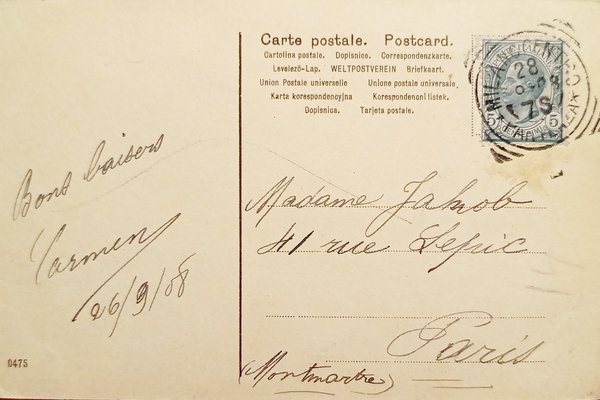 Carte postale. Postcard.
Cartolina postale. Dopisnice. Correspondenzkarte.
Levelező-Lap. WELTPOSTVEREIN Briefkaart.
Union Postale universelle Unione postale universale
Karta korespondencyjna Korespondenoni listek.
Dopisnica. Tarjeta postale.
MILANO CENTRO
28
75
5 5
Bons baisers
Carmen
26/9/08
Madame Jakob
41 rue Lepic
Paris
(Montmartre)
0475